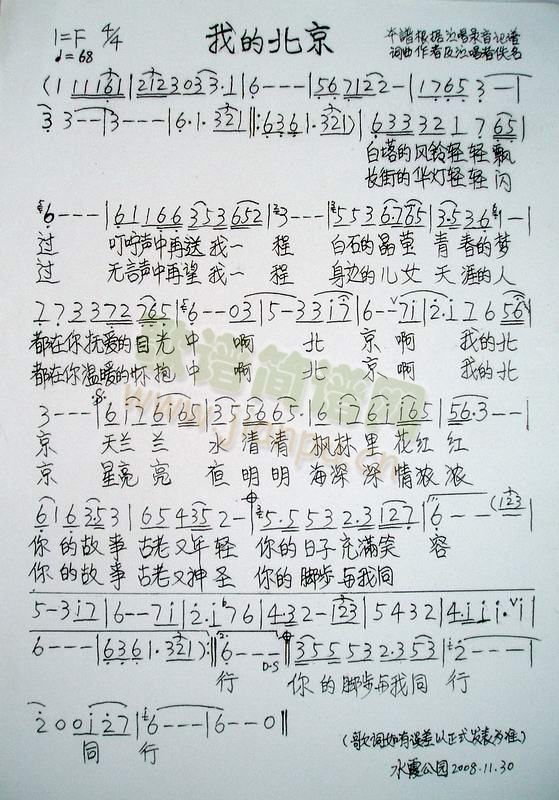 1=F 4/4
♩=68
我的北京
本谱根据演唱录音记谱
词曲作者及演唱者佚名
(1 11161|212303 3·1|6---|567122-|1765 3-|
3 3--|3---|6·1·321|:6361·321)|63332 1 7 65|
白塔的风铃轻轻飘
长街的华灯轻轻闪
6---|61166353652|3---|5536·765|3·536 1-|
过 叮咛声中再送我一程 白石的晶莹青春的梦
过 无言声中再望我一程 身边的儿女天涯的人
773372265|6--03|5-33i7|6--7i|2·i7656|
都在你抚爱的目光中啊 北京啊 我的北
都在你温暖的怀抱中啊 北京啊 我的北
3---|6i76i65|355665·|6i76ii65|56·3--|
京 天兰兰 水清清 枫林里花红红
京 星亮亮 夜明明 海深深情浓浓
6163·53|6554352-|5·5532·3127|6---(123
你的故事古老又年轻 你的日子充满笑容
你的故事古老又神圣 你的脚步与我同
5-3i7|6--7i|2·i76|4·32-123|5432|4·iii·i|
6---|6361·321):|6---|355532·353|2---|
D·S
行 你的脚步与我同行
200i27|6---|6--0‖
同行
(歌词如有误差以正式发表为准)
水霞公园2008.11.30